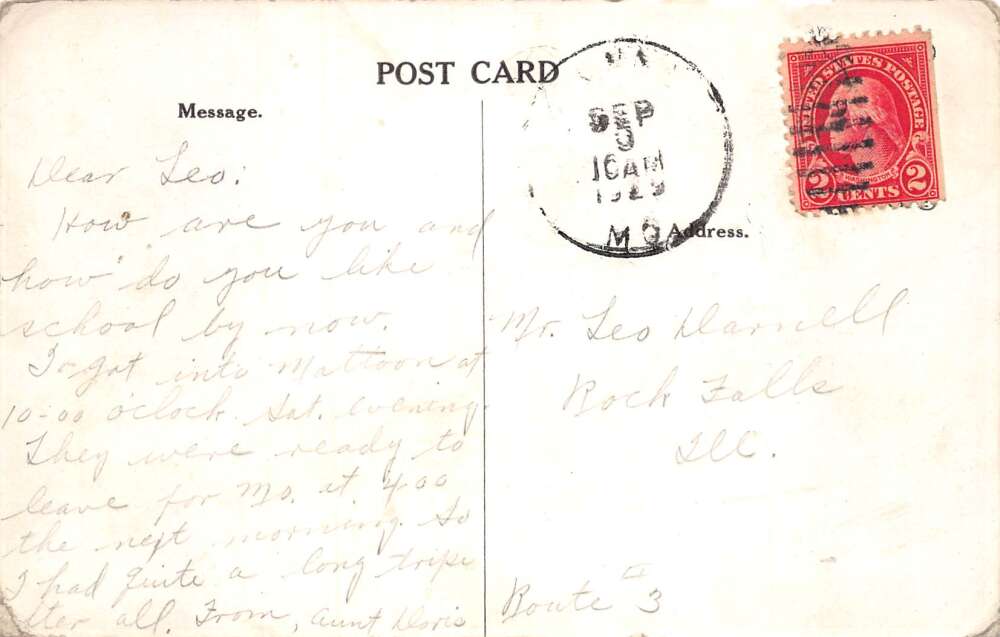 POST CARD
Message.
Dear Leo:
How are you and
how do you like
school by now.
I got into Mattoon at
10-00 o'clock Sat. evening.
They were ready to
leave for Mo. at 400
the next morning. So
I had quite a long tripe
after all. From, aunt Doris
SEP
10AM
1929
MO
UNITED STATES POSTAGE
WASHINGTON
2 CENTS 2
Address.
Mr. Leo Darnell
Rock Falls
Ill.
Route 3